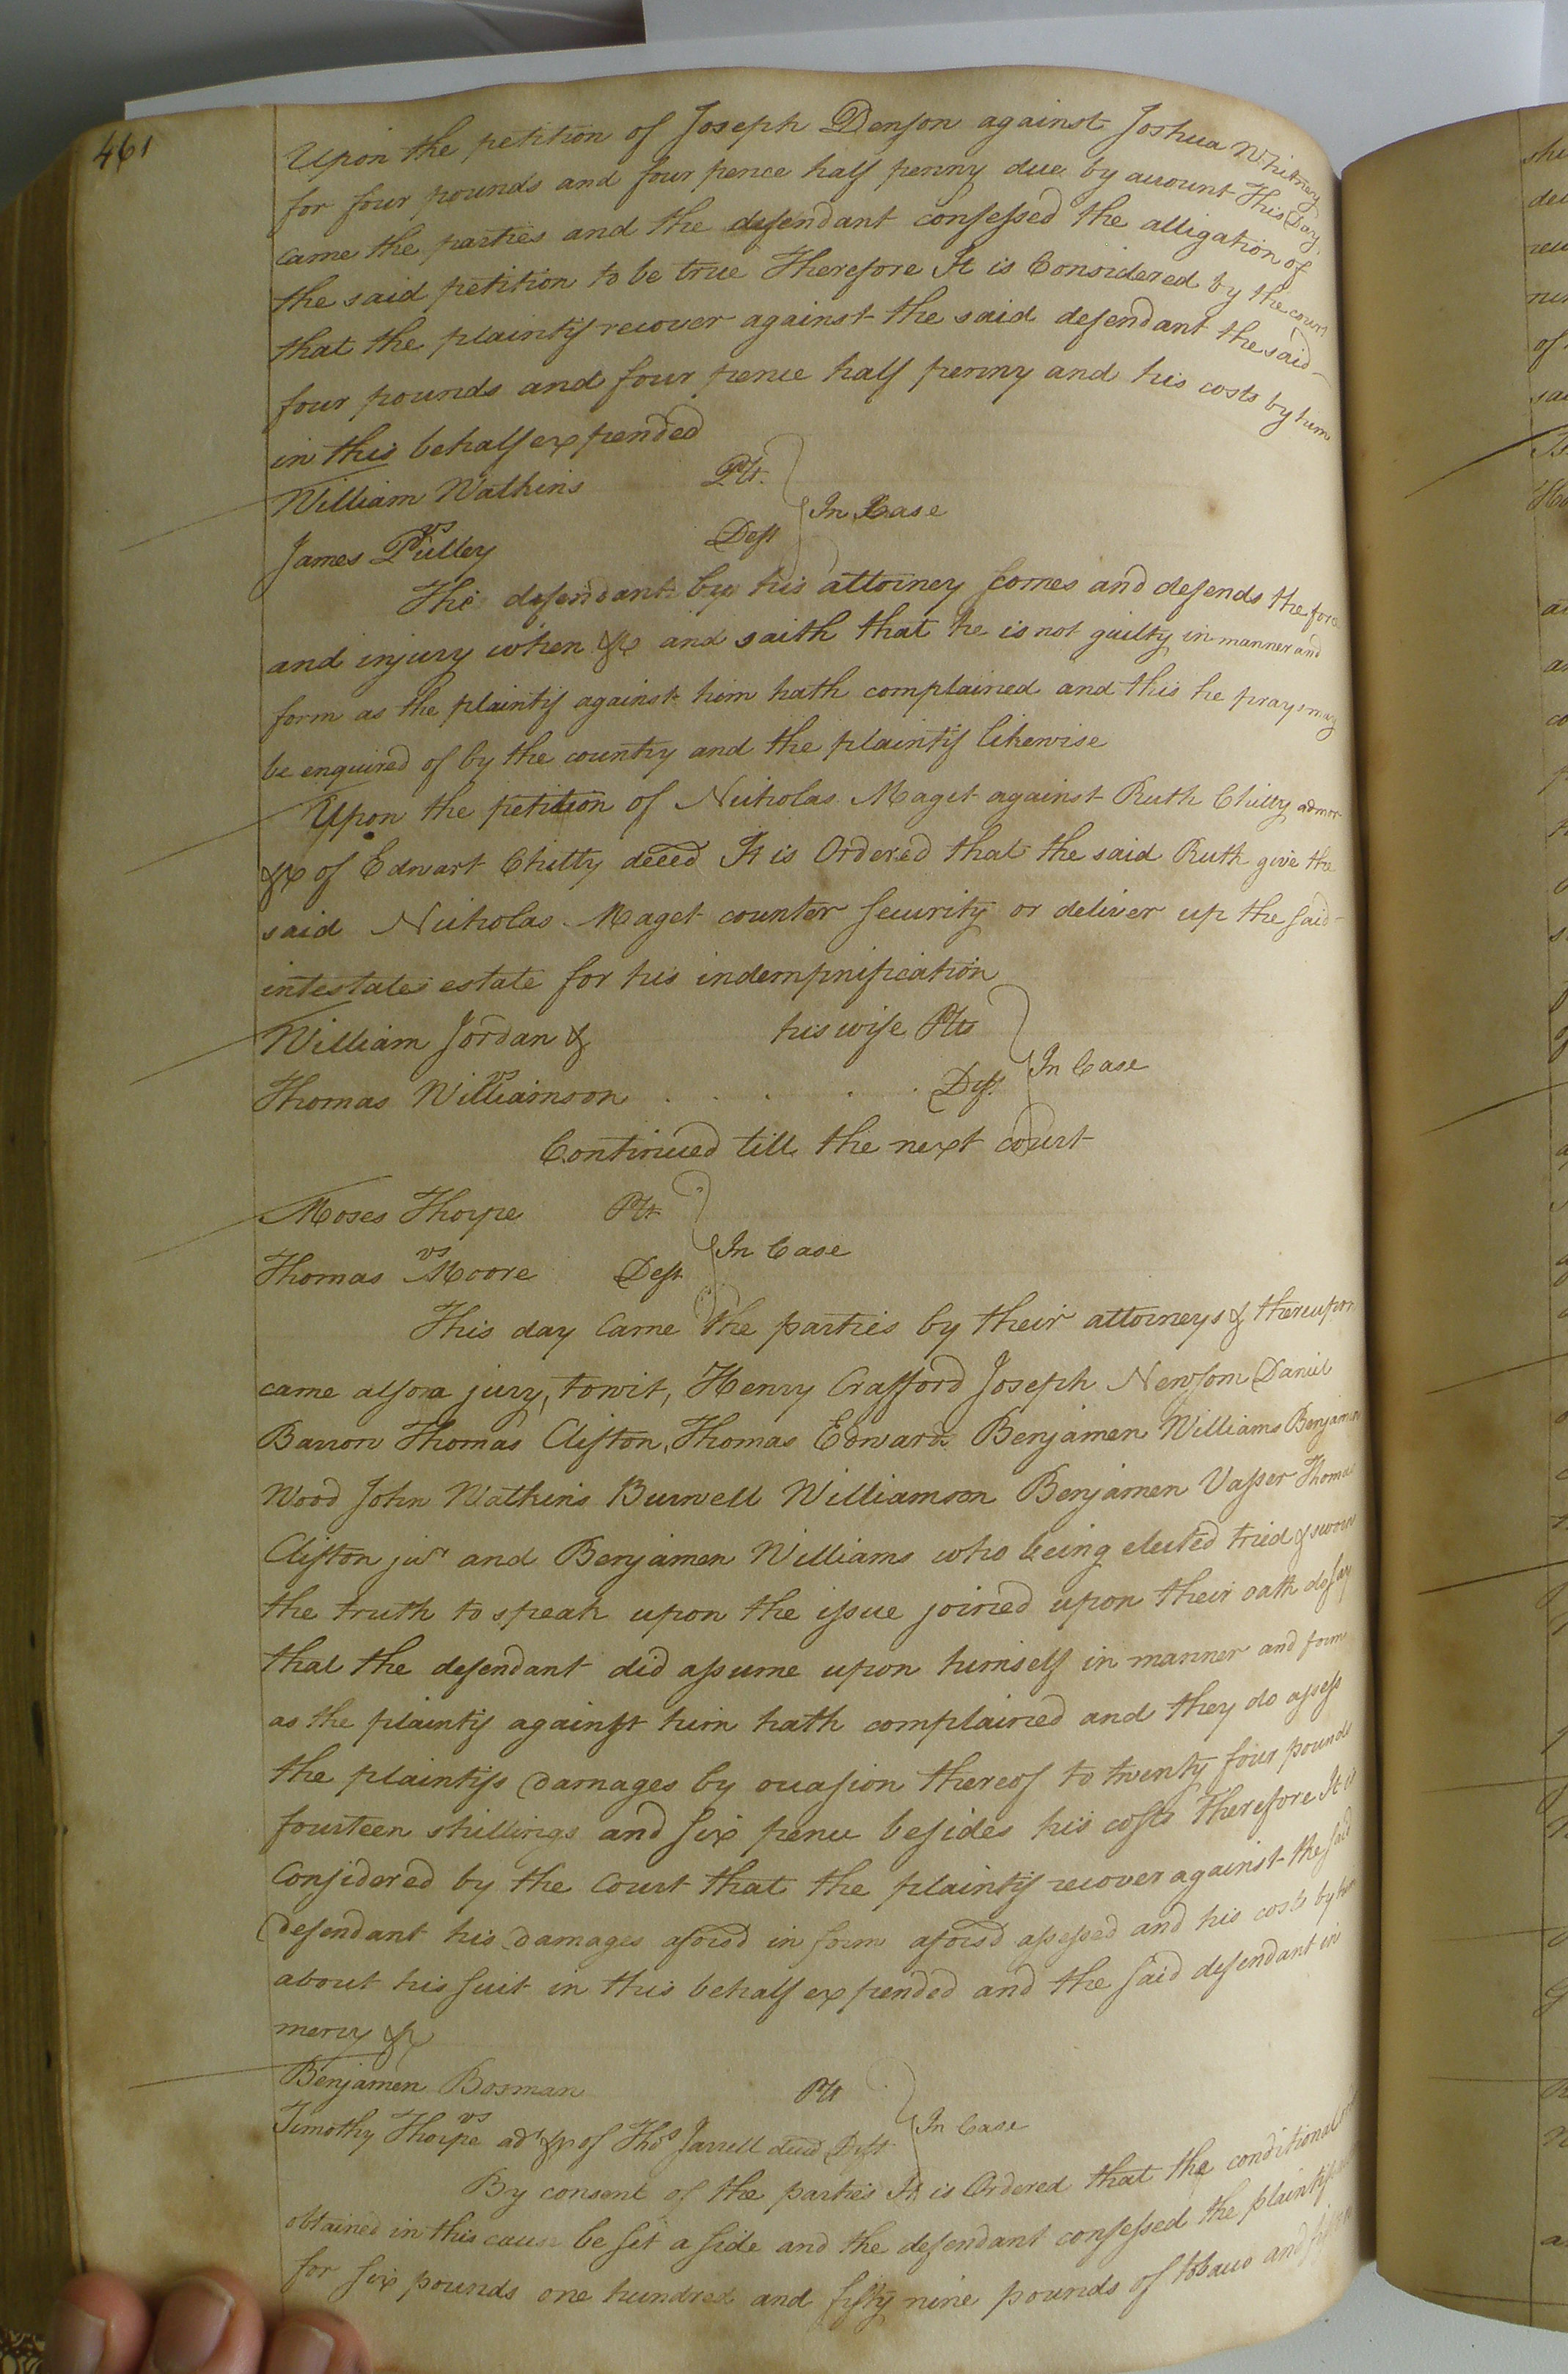 461
Upon the petition of Joseph Denson against Joshua Whitney
for four pounds and four pence half penny due by account This Day
came the parties and the defendant confessed the alligation of
the said petition to be true Therefore It is Considered by the court
that the plaintif recover against the said defendant the said
four pounds and four pence half penny and his costs by him
in this behalf expended
William Watkins Plt.
vs In Case
James Pulley Deft
The defendant by his attorney comes and defends the force
and injury when &c and saith that he is not guilty in manner and
form as the plaintif against him hath complained and this he prays may
be enquired of by the country and the plaintif likewise
Upon the petition of Nicholas Maget against Ruth Chitty admor
&c of Edwart Chitty deced It is Ordered that the said Ruth give the
said Nicholas Maget counter security or deliver up the said
intestates estate for his indempnification
William Jordan & his wife Plts
vs In Case
Thomas Williamson . . . . . Deft.
Continued till the next court
Moses Thorpe Plt
vs In Case
Thomas Moore Deft
This day came the parties by their attorneys & thereupon
came also a jury, towit, Henry Crafford Joseph Newsom Daniel
Barron Thomas Clifton, Thomas Edwards Benjamen Williams Benjamin
Wood John Watkins Burwell Williamson Benjamen Vasser Thomas
Clifton jur and Benjamen Williams who being elected tried & sworn
the truth to speak upon the issue joined upon their oath do say
that the defendant did assume upon himself in manner and form
as the plaintif against him hath complained and they do assess
the plaintifs damages by occasion thereof to twenty four pounds
fourteen shillings and six pence besides his costs Therefore It is
Considered by the Court that the plaintif recover against the said
defendant his damages aforsd in form aforsd assessed and his costs by him
about his suit in this behalf expended and the said defendant in
mercy &c
Benjamen Bosman Plt
vs In Case
Timothy Thorpe adr &c of Thos Jarrell deced Deft
By consent of the parties It is Ordered that the conditional
obtained in this cause be set a side and the defendant confessed the plaintifs
for six pounds one hundred and fifty nine pounds of tobacco and